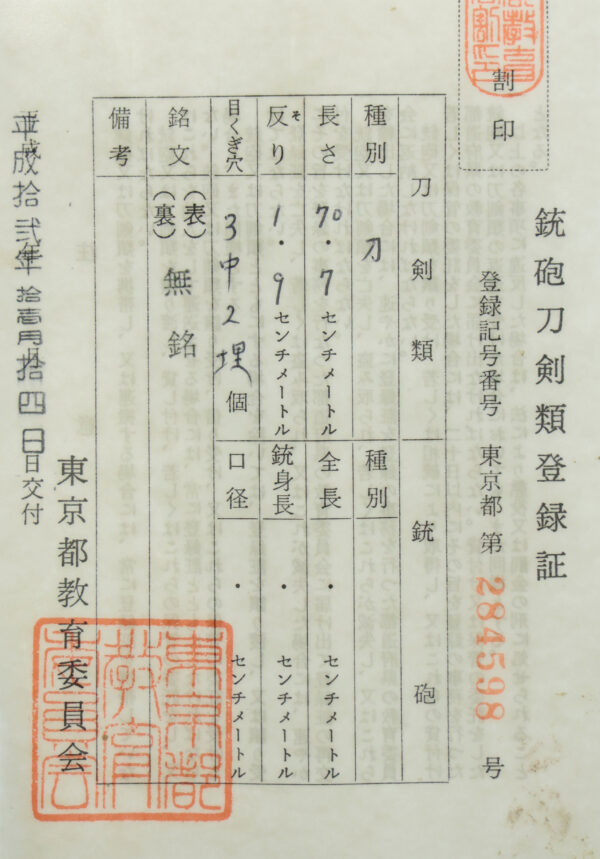 割印
銃砲刀剣類登録証
登録記号番号 東京都 第 284598 号
刀剣類
銃砲
種別 刀
種別
長さ 70・7 センチメートル
全長 ・ センチメートル
反り 1・9 センチメートル
そ
銃身長 ・ センチメートル
目くぎ穴 3中2埋 個
口径 ・ センチメートル
銘文 (表) 無銘
(裏)
備考
平成拾弐年拾壱月拾四日日交付
東京都教育委員会
東京都
教育
委員会